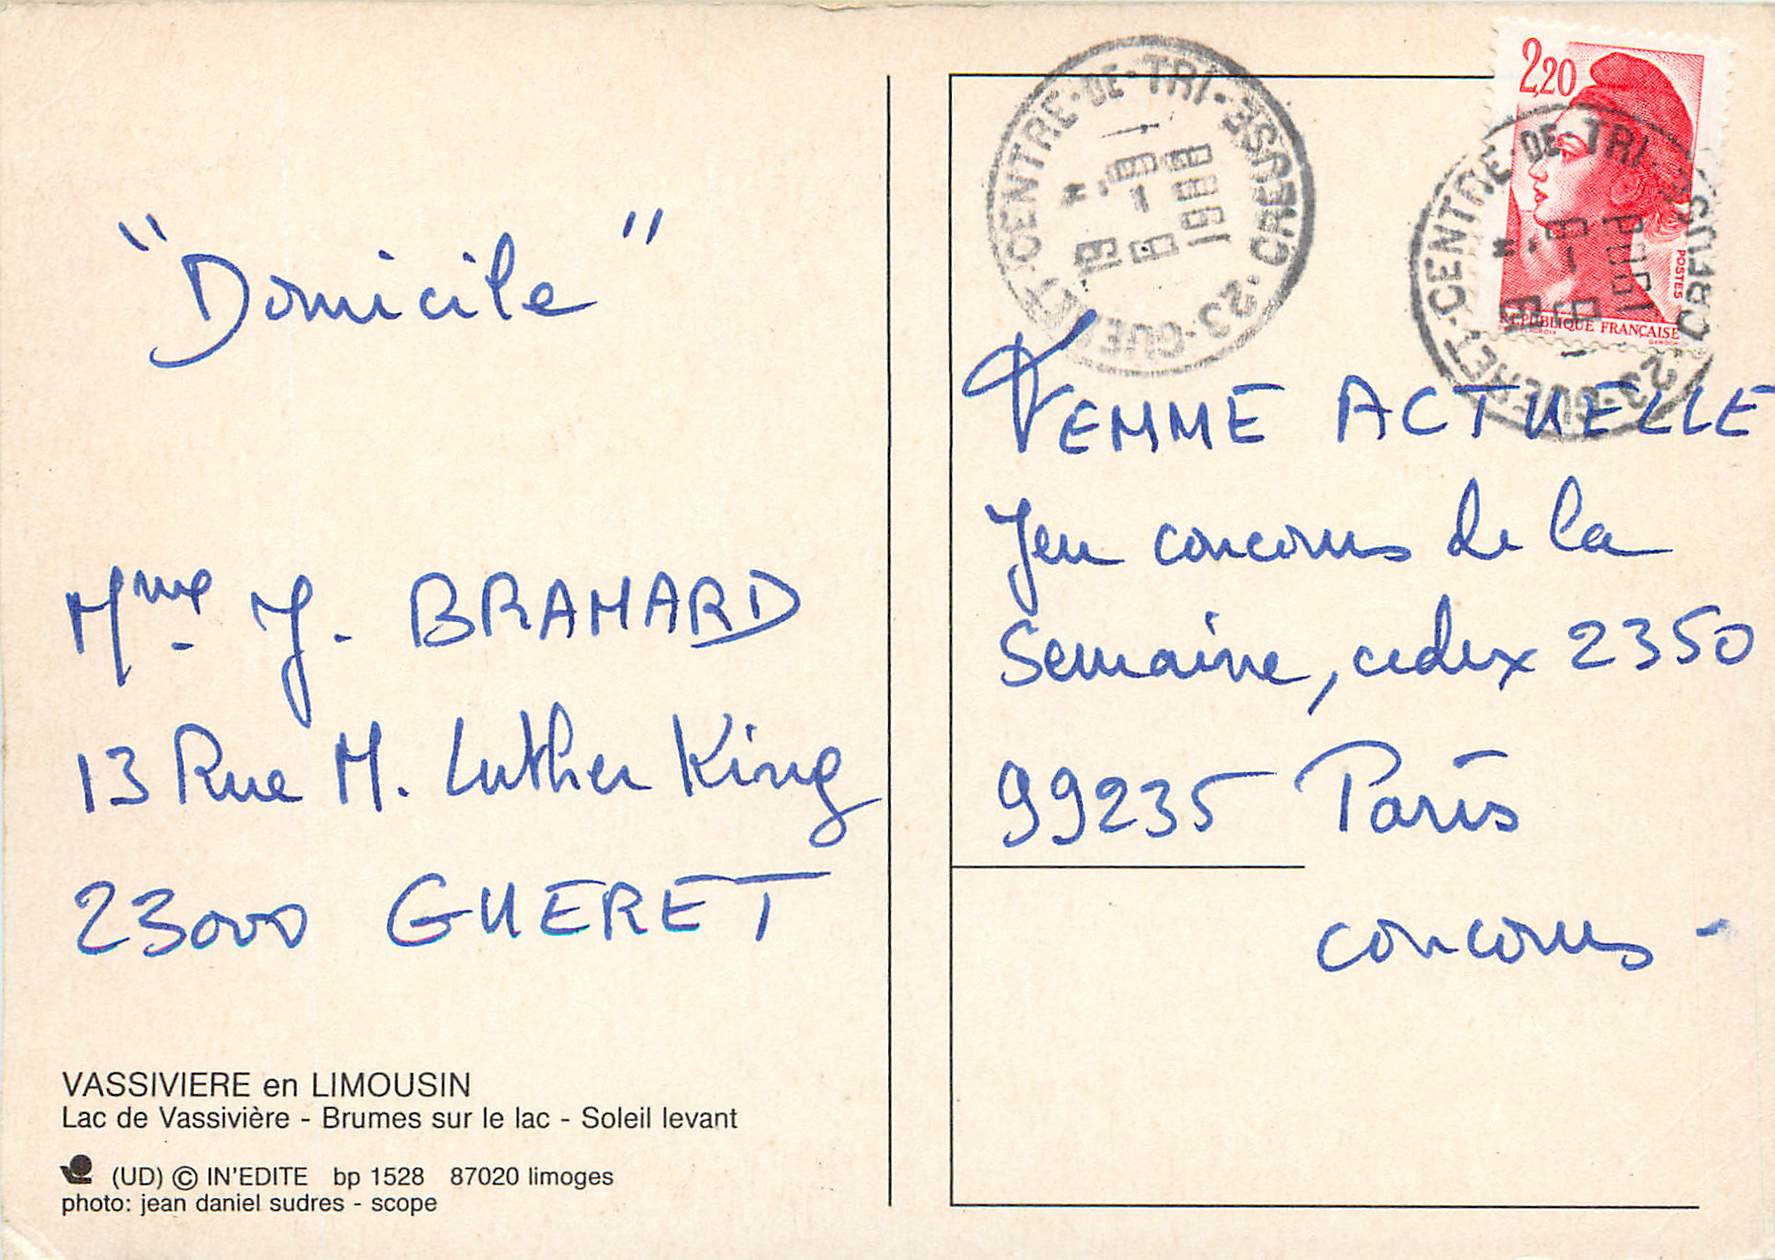 "Domicile"
Mme J. BRAMARD
13 Rue M. Luther King
23000 GUERET
VASSIVIERE en LIMOUSIN
Lac de Vassivière - Brumes sur le lac - Soleil levant
(UD) © IN'EDITE bp 1528 87020 limoges
photo: jean daniel sudres - scope
CENTRE-DE-TRI
23-GUERET CREUSE
2,20
POSTES
REPUBLIQUE FRANÇAISE
CENTRE-DE-TRI
23-GUERET CREUSE
FEMME ACTUELLE
Jeu concours de la
Semaine, cedex 2350
99235 Paris
concours -